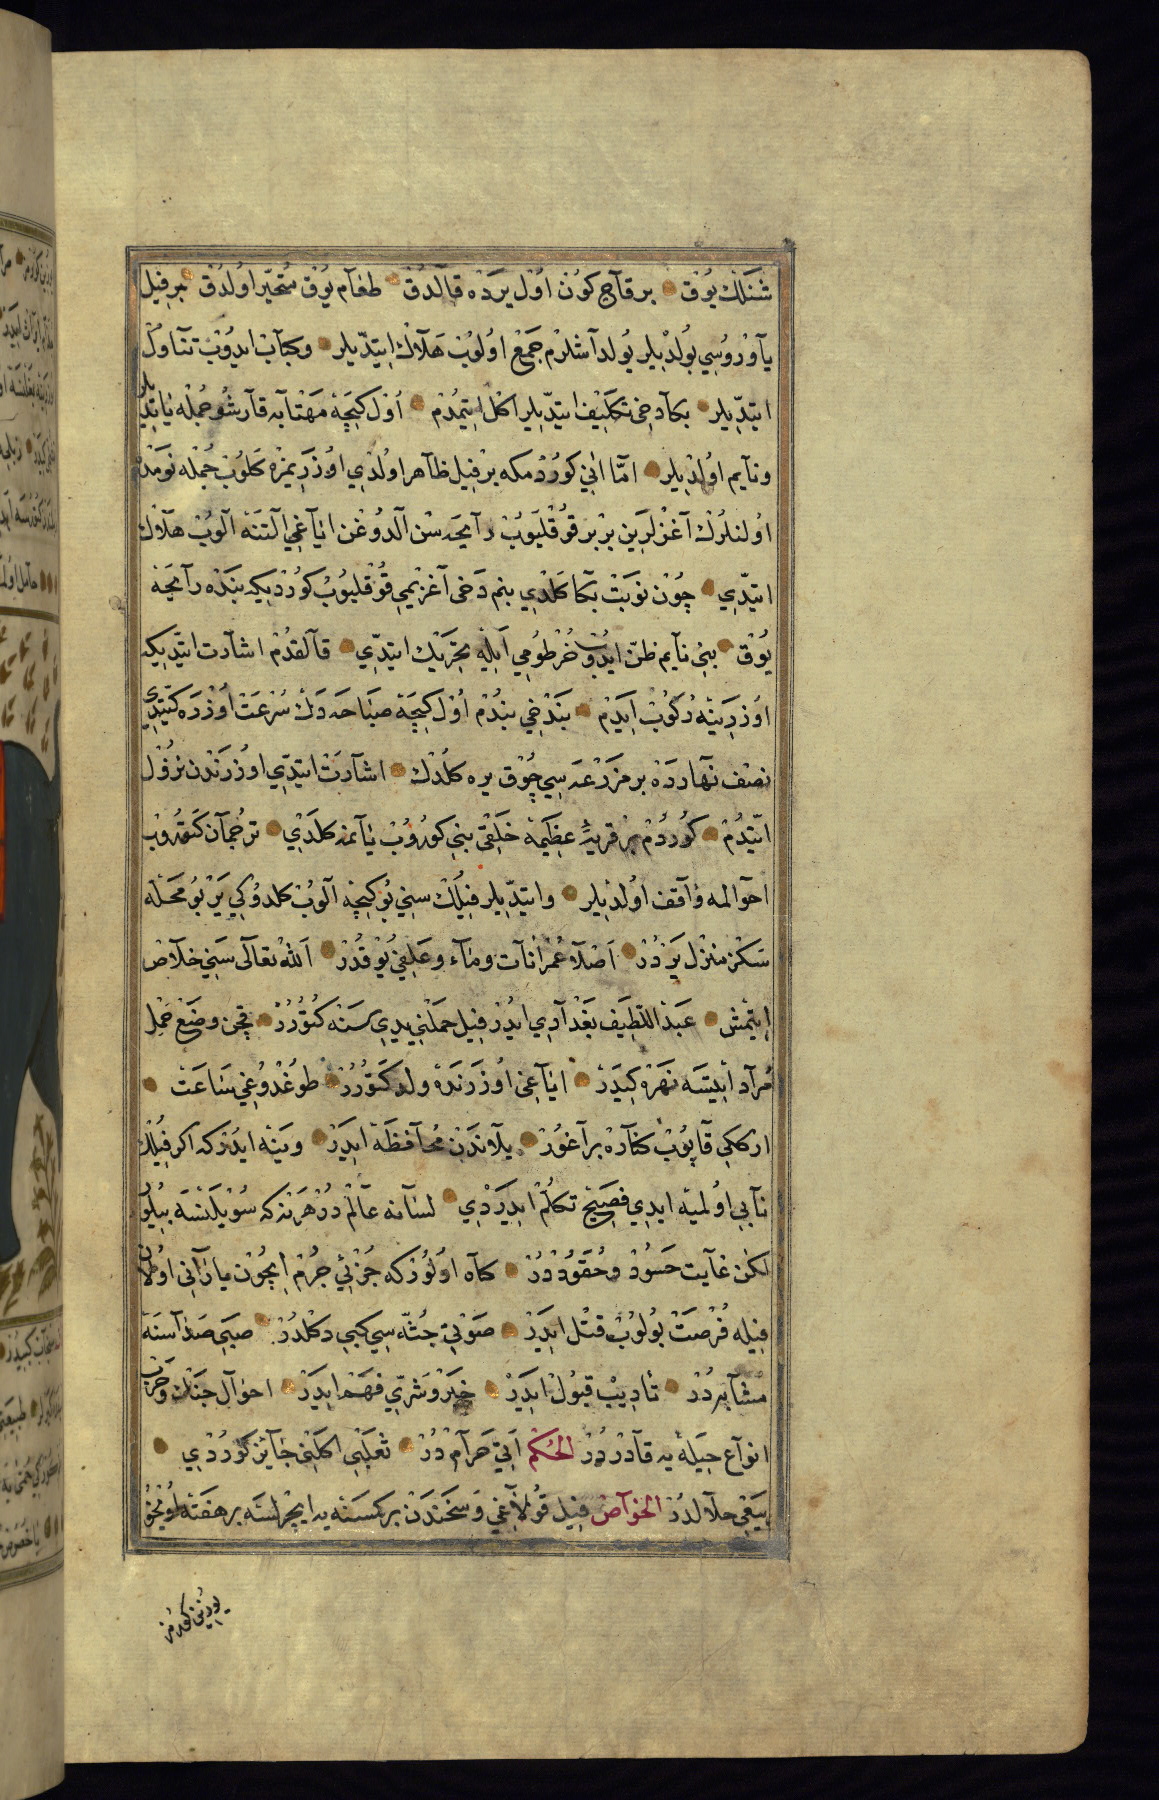 شَنَلْك يُوْق برقاج كُون اُوْل يَرْدَه قالدُق طعام يُوْق مُتحَيّر اولُدُق بر فِيل
ياوْرُوسِي بُولْدِيلر يُولداشلرم جَمع اولوُب هَلاك ايتدّيلر وكبَاب ايدُوب تناول
ايتدّيلر بكا دخى تكليف ايتدّيلر اكل ايتمُدم اُوْل كِيجَه مَهْتابه قارشو جُمْله ياتدِيلر
ونايم اولديلر امّا انى كوُرْدُم كه بر فِيل ظاهر اولدي اوزريمزه كَلوُب جُمْله نومده
اولنلرُك آغزلرين بربر قوُقليوُب رايحه سن آلدوُغن اياغى التنه آلوُب هلاك
ايتدّي چُون نوبَت بكا كَلدي بنم دَخى آغزيمى قوُقليوُب كوُردي كه بنده رايحه
يُوق بنى نايم ظنّ ايدوُب خُرطُومى ايله تحريك ايتدّي قالقدُم اشارت ايتدّي كه
اوُزرينه ركوُب ايدم بندخى بندُم اُوْل كيجَه صباحه دك سُرعت اوُزره كيتدى
نصف نهارده بر مزرعه سى چوُق يره كلدُك اشارت ايتدّي اوُزرندن نزوُل
ايتدُم كوُردُم بر قريهٔ عظيمه خلقى بنى كوروُب يانمه كلدي ترجمان كتوروب
احوالمه واقف اولديلر وايتدّيلر فِيلُك سنى بُو كيجه آلوُب كلدوُكى ير بُو محلّه
سكز منزل يردُر اصلا عُمرانات وماء وعلفى يوُقدُر الله تعالى سنى خلاص
ايتمش عبد اللطيف بغدادي ايدُر فِيل حملنى يدى سنه كتوُرُر قچن وضع حمل
مراد ايتسه نهره كيدر اياغى اوُزرنده ولد كتوُرُر طوُغدوُغى ساعت
اركگى قاپوُب كناره براغوُر يلاندن محافظه ايدر وينه ايدُر كه اكر فيلك
نابى اولميه ايدي فصيح تكلّم ايدردي لسانه عالمدُر هر نه كه سوُيلنسه بيلور
لكن غايت حسوُد وحقوُددُر كاه اولوُر كه جزئى جُرم ايچُون يارانى اولان
فِيله فُرصت بُولوُب قتل ايدر صوتى جثّه سى كبى دكلدُر صبى صداسنه
مُشابهدُر تأديب قبول ايدر خير وشرّى فهم ايدر احوال جنك وحرب
انواع حيله يه قادردُر الحُكم اتى حرامدُر ثعلبى اكلنى جايز كوُردي
بيعى حلالدُر الخواص فِيل قولاغى وسخندن بر كسنه يه ايچرلسه بر هفته اويخو